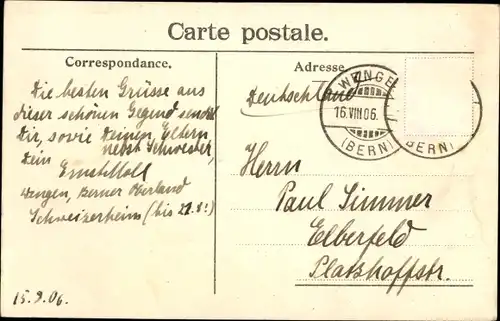 Carte postale.
Correspondance.
Die besten Grüsse aus
dieser schönen Gegend sendet
Dir, sowie Deinen Eltern
nebst Schwester,
Dein
Wengen, Berner Oberland
Schweizerheim (bis 21.8!)
15.9.06.
Adresse
Deutschland
WENGE
16.VIII.06.
(BERN)
(BERN)
Herrn
Paul Simmer
Elberfeld
Platzhoffstr.